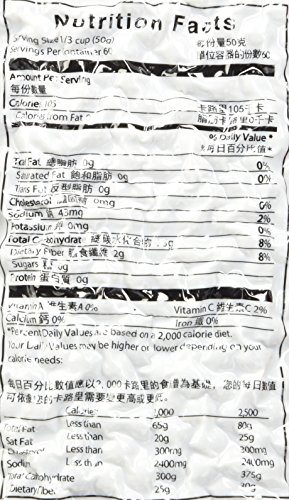 Nutrition Facts
Serving Size 1/3 cup (50g) 每份量50克
Servings Per Container 60 單位容器的份數60
Amount Per Serving
每份數量
Calories 105 卡路里105千卡
Calories from Fat 0 脂肪卡路里0千卡
% Daily Value *
%每日百分比值*
Total Fat 總脂肪 0g 0%
Saturated Fat 飽和脂肪 0g 0%
Trans Fat 反型脂肪 0g
Cholesterol 0mg 0%
Sodium 鈉 43mg 2%
Potassium 鉀 0mg 0%
Total Carbohydrate 總碳水化合物 8%
Dietary Fiber 膳食纖維 2g 8%
Sugars 0g
Protein 蛋白質 0g
Vitamin A 維生素A 0% Vitamin C 維生素C 2%
Calcium 鈣 0% Iron 鐵 0%
*Percent Daily Values are based on a 2,000 calorie diet.
Your Daily Values may be higher or lower depending on your
calorie needs:
每日百分比數值應以2,000卡路里的食譜為基礎，您的每日數值
可依您的卡路里需要變更高或更低。
Calories: 2,000 2,500
Total Fat Less than 65g 80g
Sat Fat Less than 20g 25g
Cholesterol Less than 300mg 300mg
Sodium Less than 2400mg 2400mg
300g 375g
Dietary Fiber 25g 30g